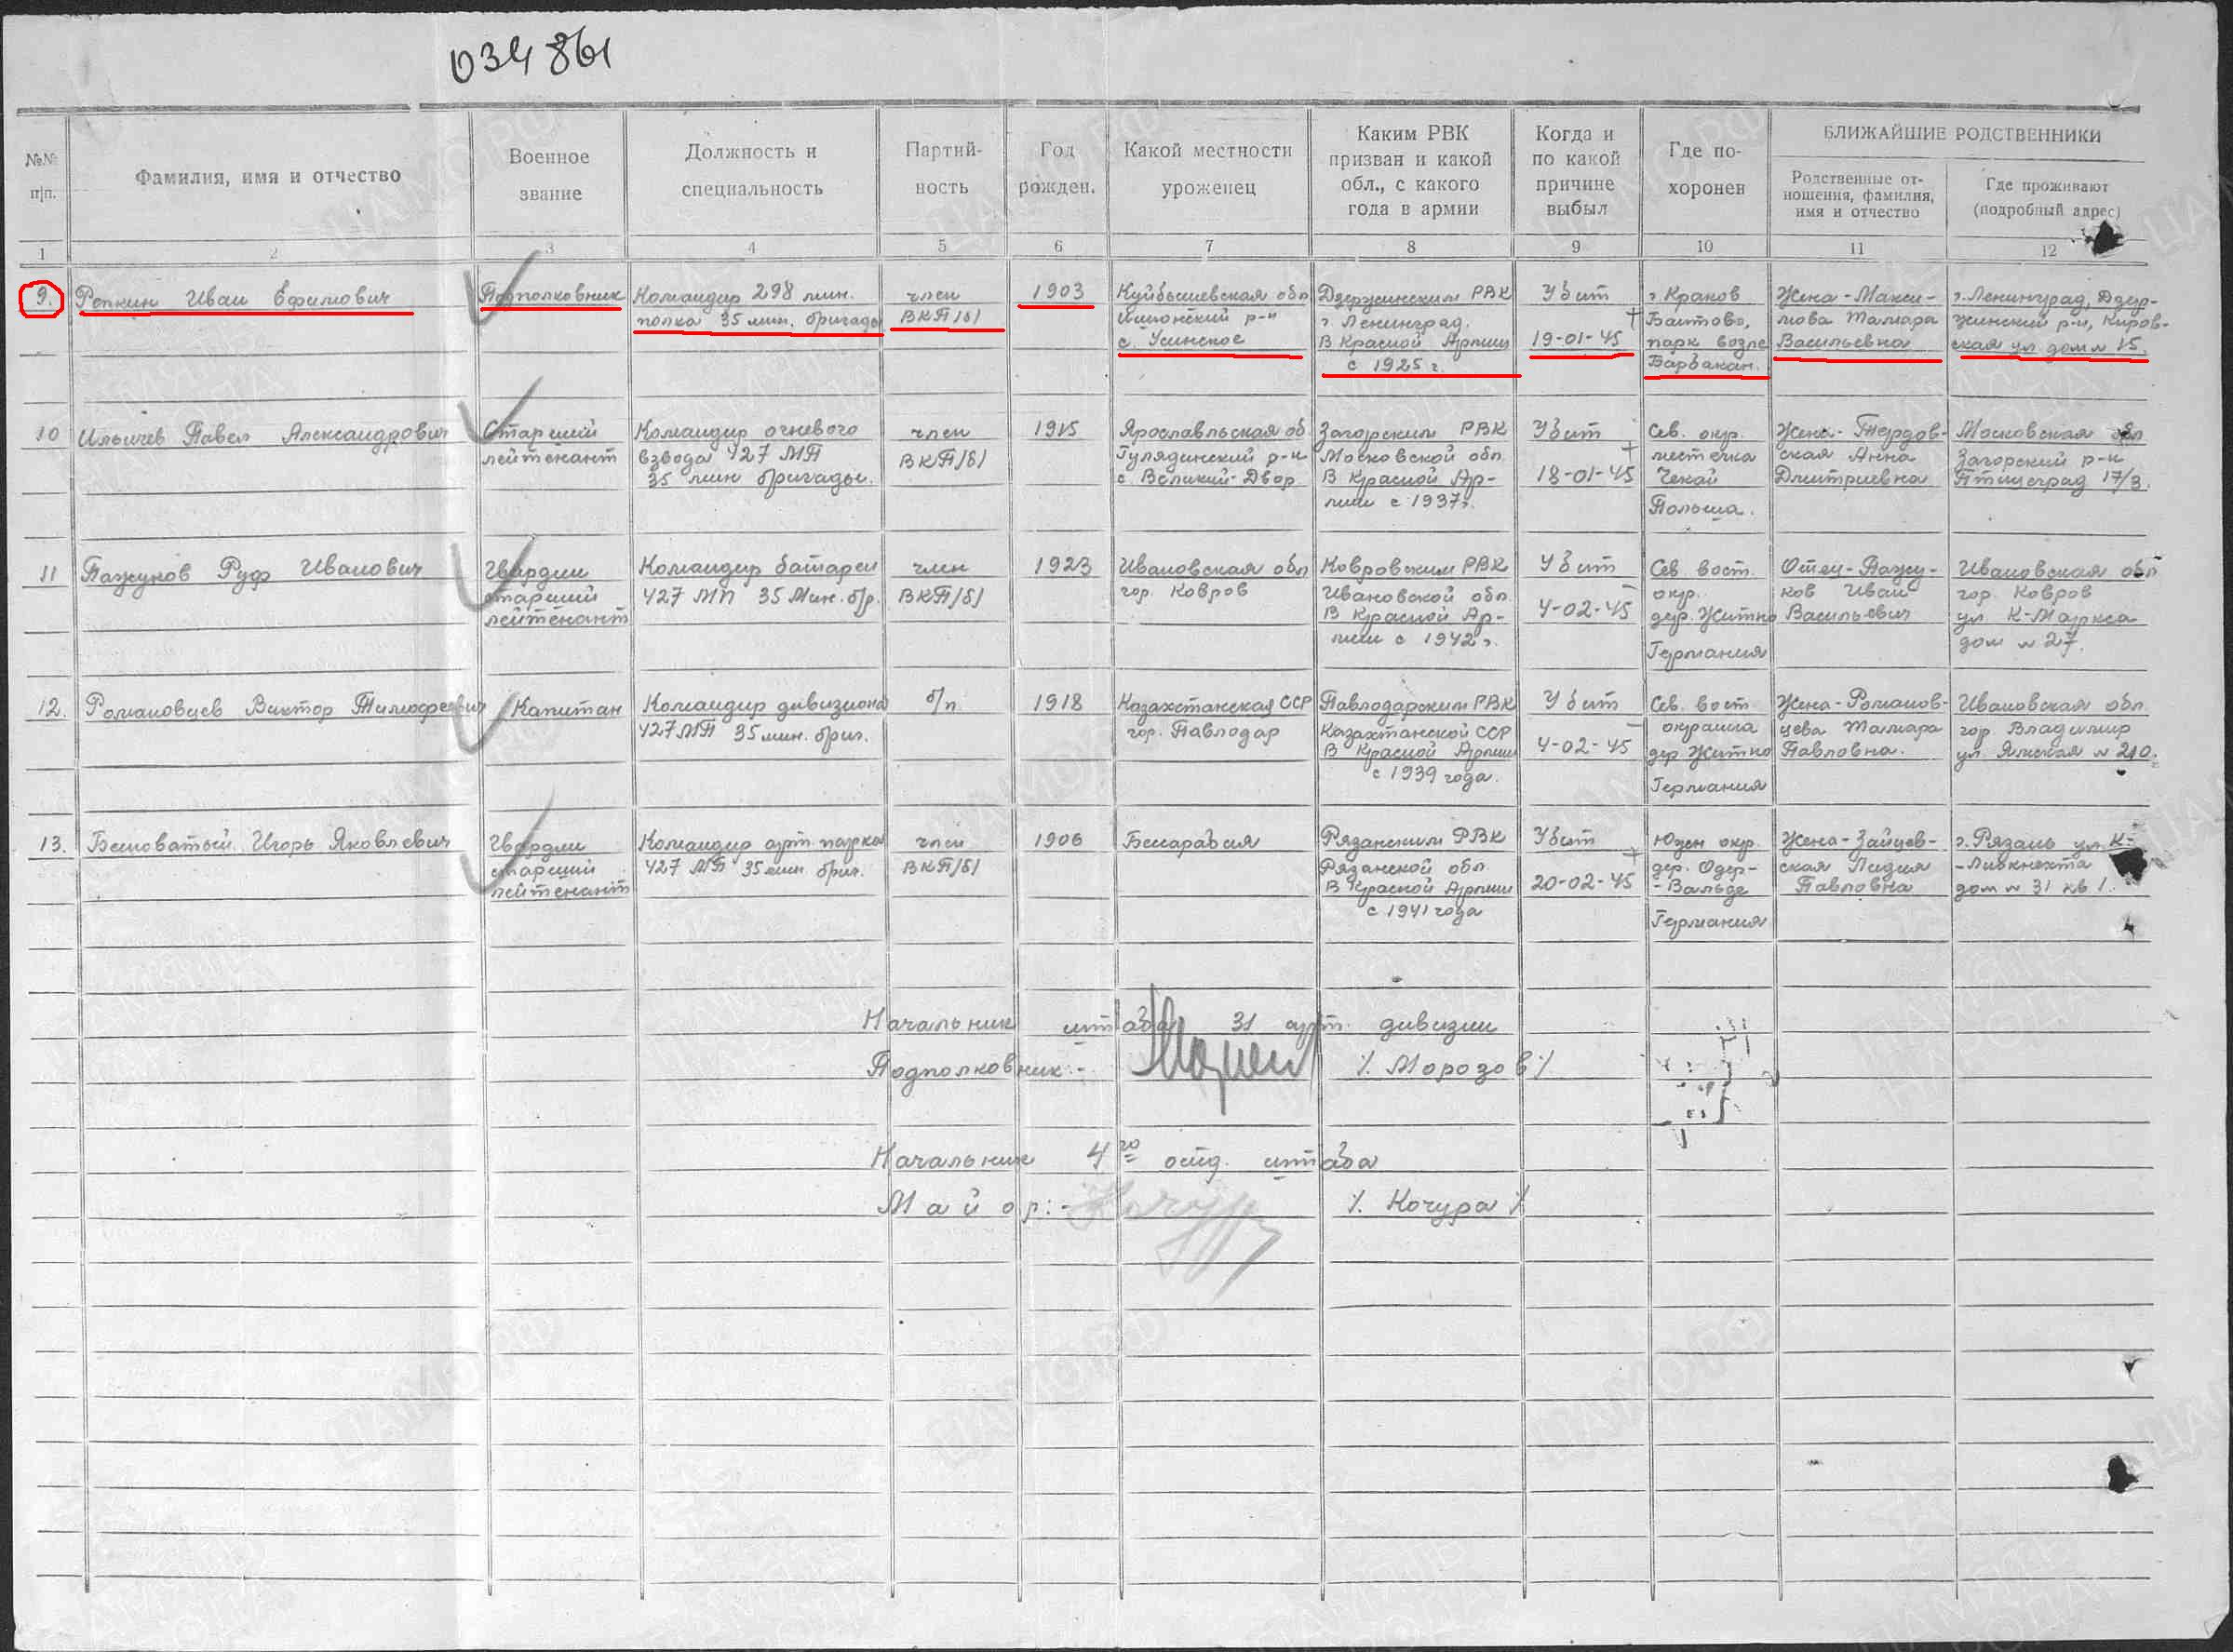 034861
№№ п|п.
Фамилия, имя и отчество
Военное звание
Должность и специальность
Партий-
ность
Год рожден.
Какой местности уроженец
Каким РВК
призван и какой
обл., с какого
года в армии
Когда и
по какой
причине
выбыл
Где по-
хоронен
БЛИЖАЙШИЕ РОДСТВЕННИКИ
Родственные от-
ношения, фамилия,
имя и отчество
Где проживают
(подробный адрес)
1 2 3 4 5 6 7 8 9 10 11 12
9.
Репкин Иван Ефимович
Подполковник
Командир 298 мин.
полка 35 мин. бригады
член
ВКП/б/
1903
Куйбышевская обл
р-н
с. Усинское
Дзержинским РВК
г. Ленинград.
В Красной Армии
с 1925 г.
Убит
19-01-45
г. Краков
парк возле
Барбакан.
Жена-Макси-
мова Тамара
Васильевна
г. Ленинград, Дзер-
жинский р-н, Киров-
ская ул. дом № 15.
10
Ильичев Павел Александрович
Старший
лейтенант
Командир огневого
взвода 427 МП
35 мин бригады.
член
ВКП/б/
1915
Ярославльская об
р-н
с Великий-Двор
Загорским РВК
Московской обл.
В Красной Ар-
мии с 1937г.
Убит
18-01-45
Сев. окр.
местечка
Польша.
Жена-Твердов-
ская Анна
Дмитриевна
Московская обл
Загорский р-н
Птицеград 17/3.
11
Пажуков Руф Иванович
Гвардии
старший
лейтенант
Командир батареи
427 МП 35 Мин. бр.
член
ВКП/б/
1923
Ивановская обл
гор. Ковров
Ковровским РВК
Ивановской обл.
В Красной Ар-
мии с 1942 г.
Убит
4-02-45
Сев. вост.
окр.
дер. Житно
Германия
Отец-Пажу-
ков Иван
Васильевич
Ивановская обл
гор. Ковров
ул. К-Маркса
дом № 27.
12.
Романовцев Виктор Тимофеевич
Капитан
Командир дивизиона
427 МП 35 мин. бриг.
б/п
1918
Казахстанская ССР
гор. Павлодар
Павлодарским РВК
Казахстанской ССР
В Красной Армии
с 1939 года.
Убит
4-02-45
Сев. вост.
окраина
дер Житно
Германия
Жена-Романов-
цева Тамара
Павловна.
Ивановская обл.
гор. Владимир
ул. Ямская № 210.
13.
Игорь Яковлевич
Гвардии
старший
лейтенант
Командир арт. парка
427 МП 35 мин. бриг.
член
ВКП/б/
1906
Бессарабия
Рязанским РВК
Рязанской обл.
В Красной Армии
с 1941 года
Убит
20-02-45
Южн окр.
дер. Одер-
-Вальде
Германия
Жена-Зайцев-
ская Лидия
Павловна
г. Рязань ул. К-
-Либкнехта
дом № 31 кв 1.
Начальник штаба 31 арт. дивизии
Подполковник:- /. Морозов /
Начальник 4го отд. штаба
Майор:- /. Кочура /
ЦАМО РФ